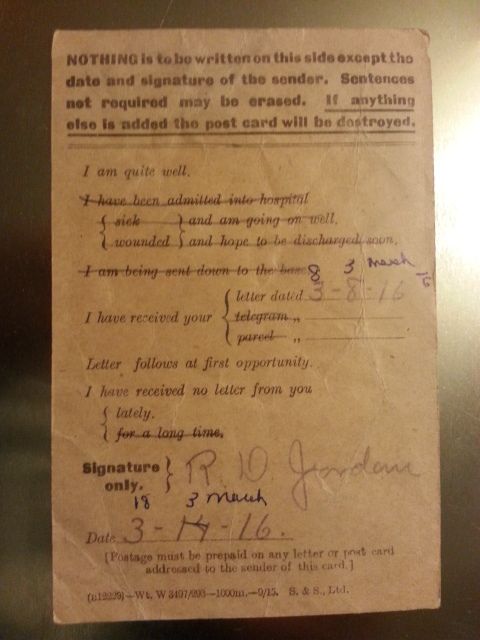 NOTHING is to be written on this side except the
date and signature of the sender. Sentences
not required may be erased. If anything
else is added the post card will be destroyed.
I am quite well.
I have been admitted into hospital
{ sick } and am going on well.
{ wounded } and hope to be discharged soon.
I am being sent down to the base
8 3 March 16
letter dated 3-8-16
I have received your { telegram „
parcel „
Letter follows at first opportunity.
I have received no letter from you
{ lately.
{ for a long time.
Signature } R D Jordan
only.
18 3 March
Date 3-14-16.
[Postage must be prepaid on any letter or post card
addressed to the sender of this card.]
(B12229)—Wt. W 3497/293—1000m.—9/15. S. & S., Ltd.